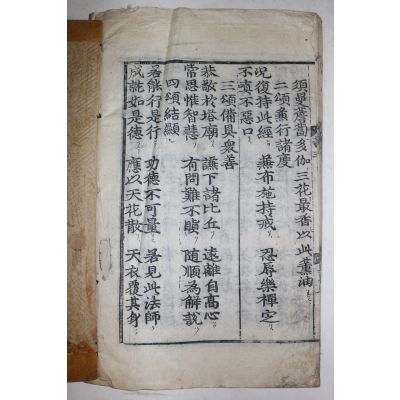 須曼瞻蔔多伽三花最香以此薰油
二頌兼行諸度
況復持此經 兼布施持戒 忍辱樂禪定
不嗔不惡口
三頌備具衆善
恭敬於塔廟 謙下諸比丘 遠離自高心
常思惟智慧 有問難不瞋 隨順為解說
四頌結顯
若能行是行 功德不可量 若見此法師
成就如是德 應以天花散 天衣覆其身